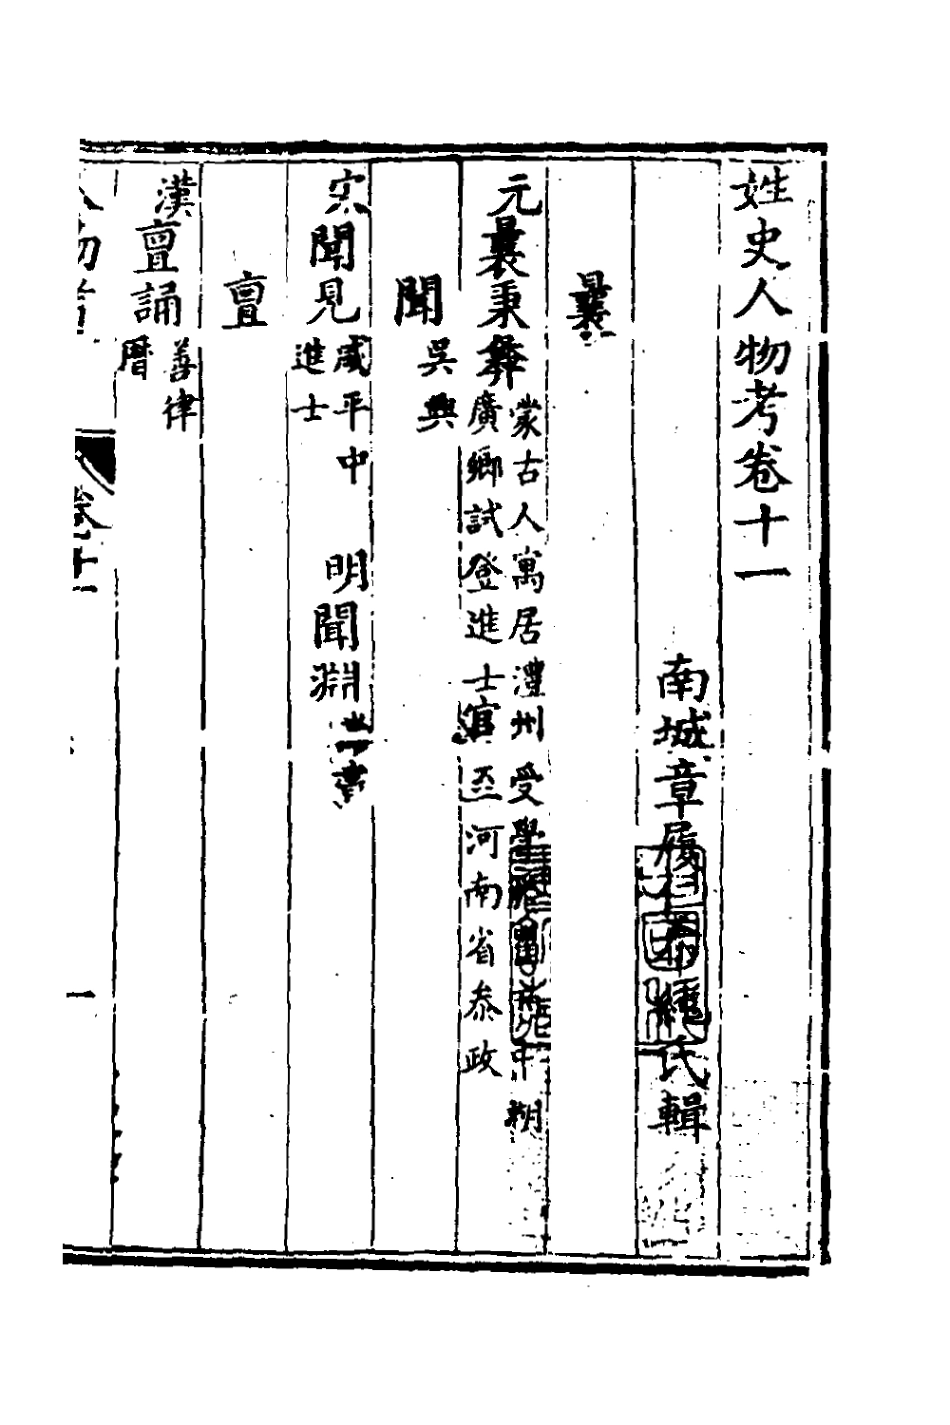 姓史人物考卷十一
南城章履
繩氏輯
曩
元曩秉彝
蒙古人寓居澧州受學
中湖
廣鄉試登進士官至河南省叅政
聞
吳興
宋聞見
咸平中
進士
明聞淵
亶
漢亶誦
善律
曆
人物考
卷十一
一